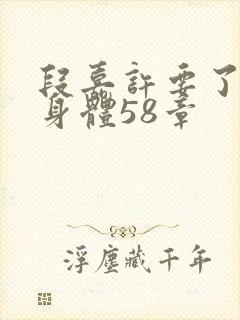 段嘉許要了
身體58章
浮塵藏千年